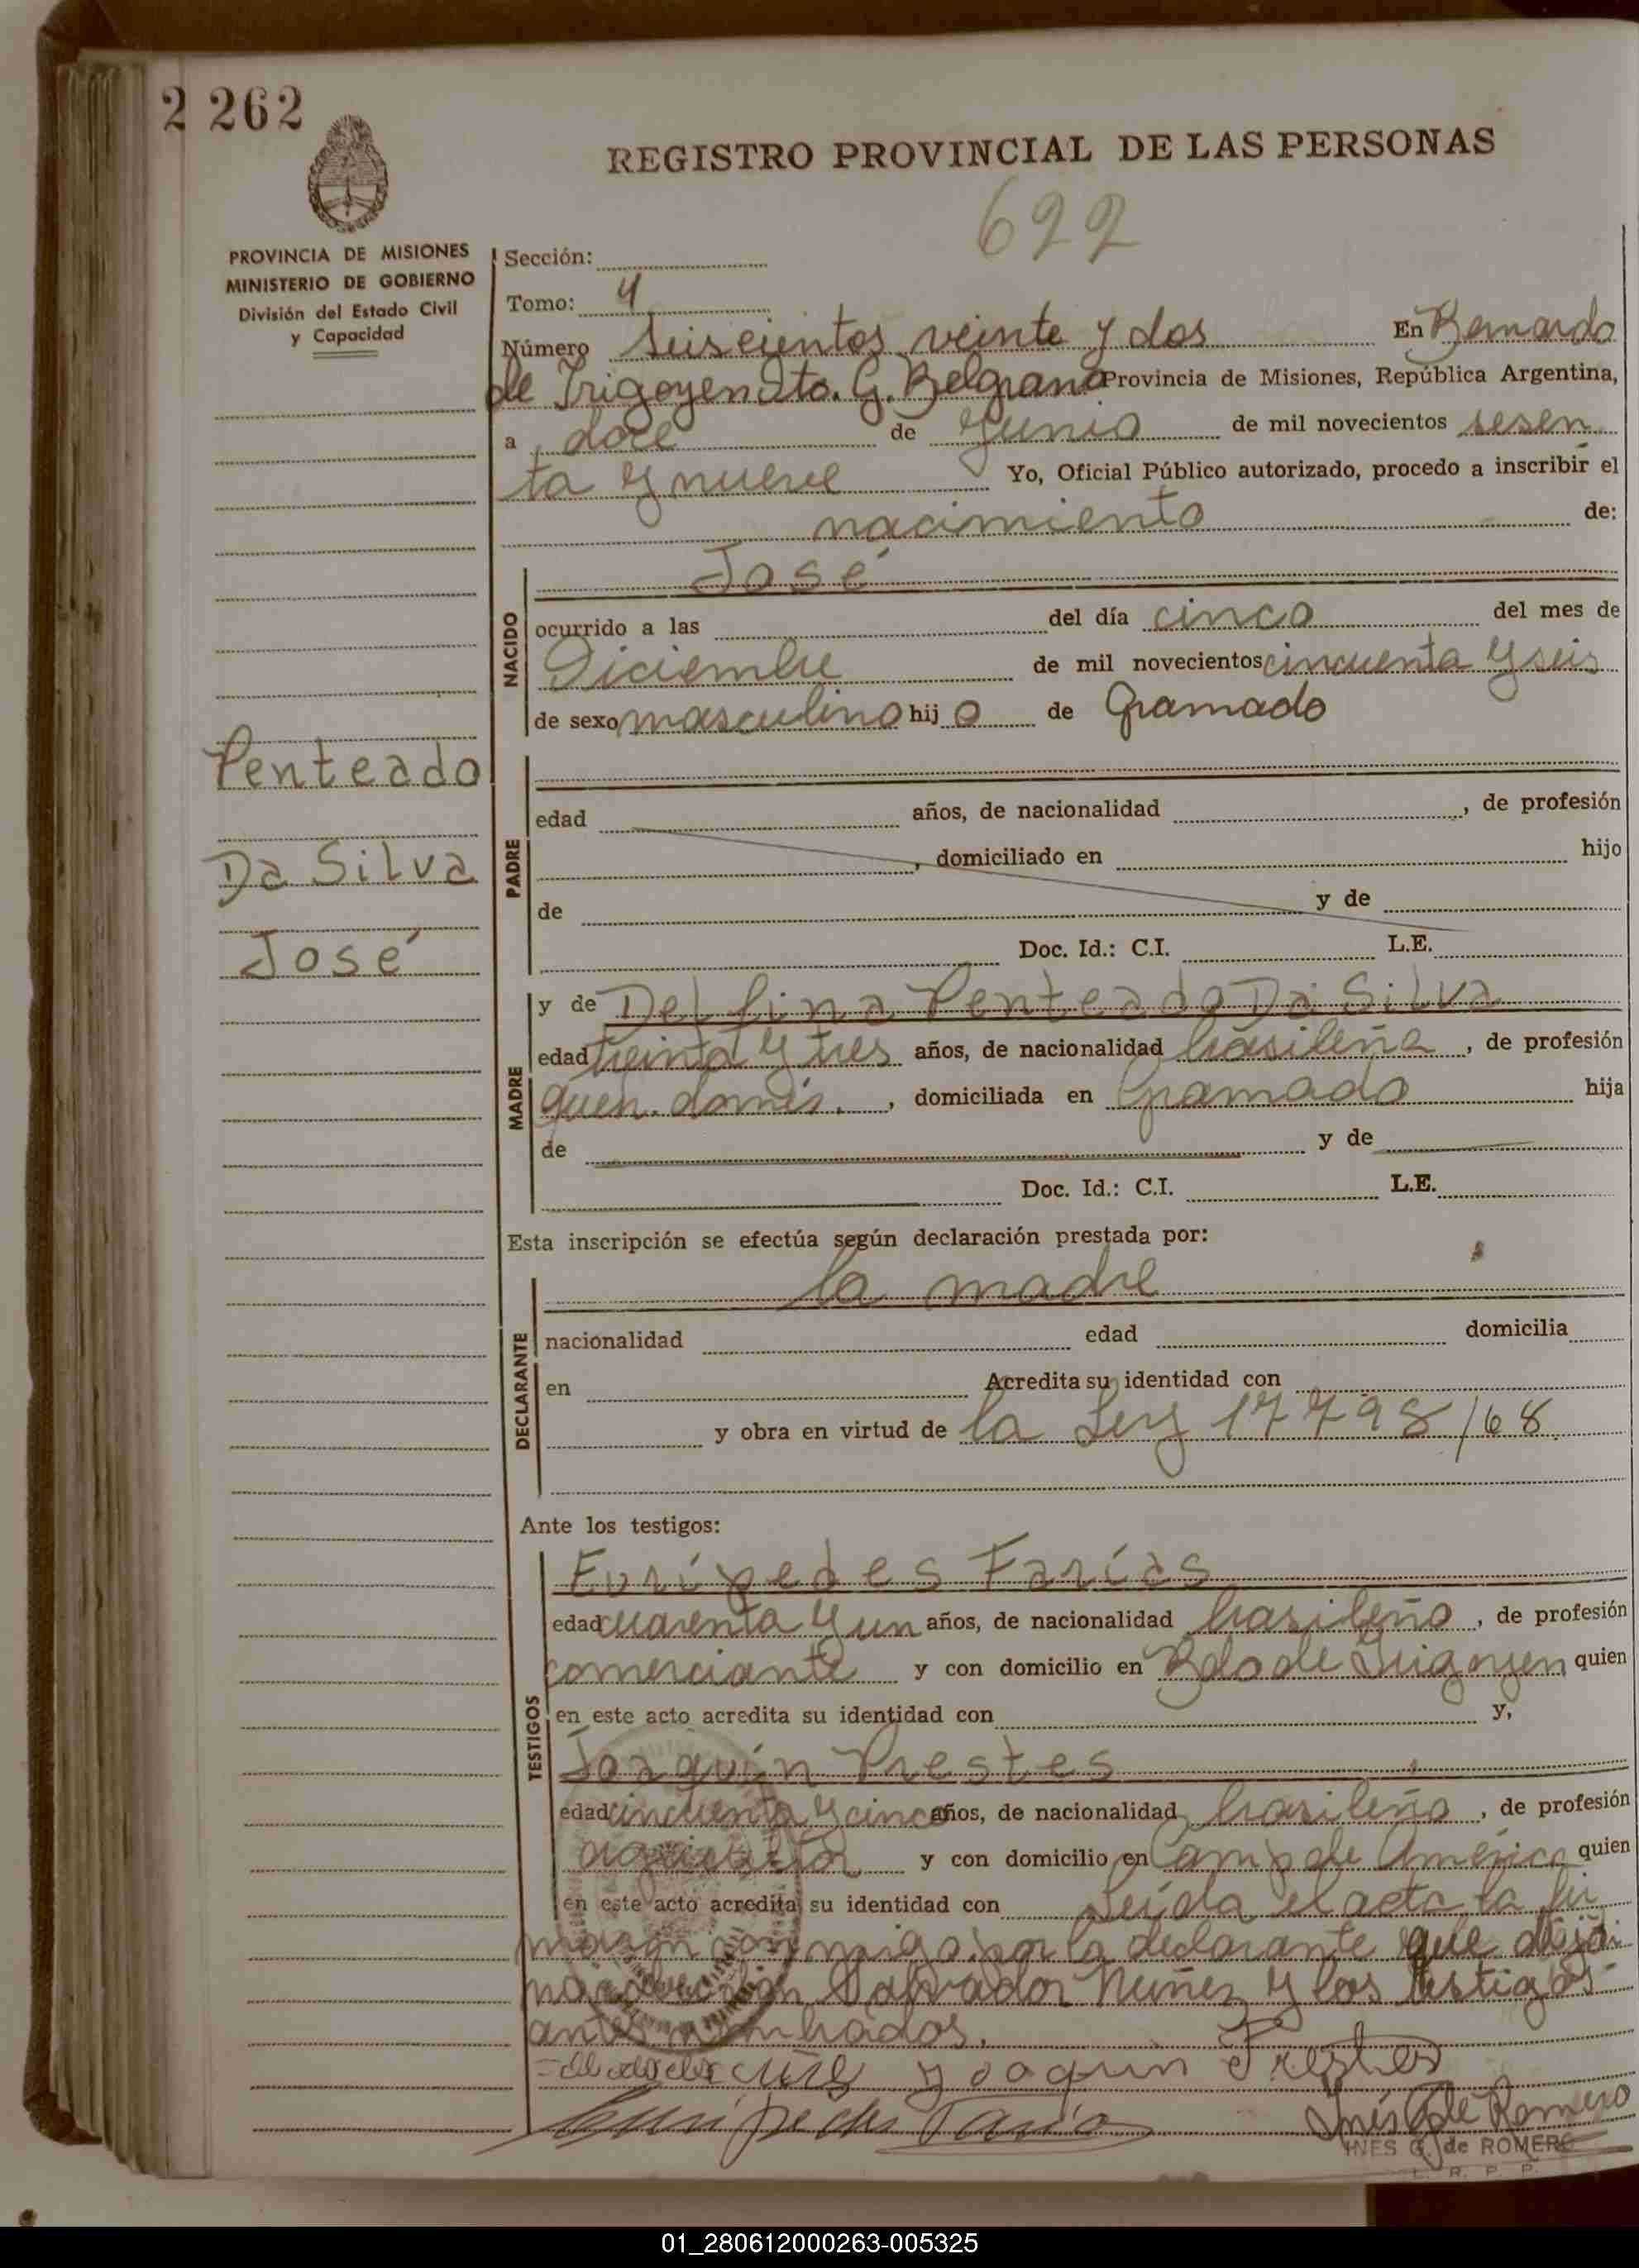 2 262
REGISTRO PROVINCIAL DE LAS PERSONAS
622
PROVINCIA DE MISIONES
MINISTERIO DE GOBIERNO
División del Estado Civil
y Capacidad
Sección:
Tomo: 4
Número Seiscientos veinte y dos En Bernardo
de Irigoyen Dto. G. Belgrano Provincia de Misiones, República Argentina,
a doce de Junio de mil novecientos sesen
ta y nueve Yo, Oficial Público autorizado, procedo a inscribir el
nacimiento de:
NACIDO
José
ocurrido a las del día cinco del mes de
Diciembre de mil novecientos cincuenta y seis
de sexo masculino hij o de Gramado
Penteado
Da Silva
José
PADRE
edad años, de nacionalidad , de profesión
, domiciliado en hijo
de y de
Doc. Id.: C.I. L.E.
MADRE
y de Delfina Penteado Da Silva
edad treinta y tres años, de nacionalidad brasileña , de profesión
queh. domés. , domiciliada en Gramado hija
de y de
Doc. Id.: C.I. L.E.
Esta inscripción se efectúa según declaración prestada por:
DECLARANTE
la madre
nacionalidad edad domicilia
en Acredita su identidad con
y obra en virtud de la Ley 17798/68
Ante los testigos:
TESTIGOS
Eurípedes Farías
edad cuarenta y un años, de nacionalidad brasileño , de profesión
comerciante y con domicilio en Bdo de Irigoyen quien
en este acto acredita su identidad con y,
Joaquín Prestes
edad cincuenta y cinco años, de nacionalidad brasileño , de profesión
agricultor y con domicilio en Camp de América quien
en este acto acredita su identidad con Leída el acta la fir
maron conmigo por la declarante que
Salvador Nuñez y los testigos
antes nombrados.
Joaquin Prestes
Euripedes Farias Inés G de Romero
INES G. de ROMERO
L. R. P. P.
01_280612000263-005325